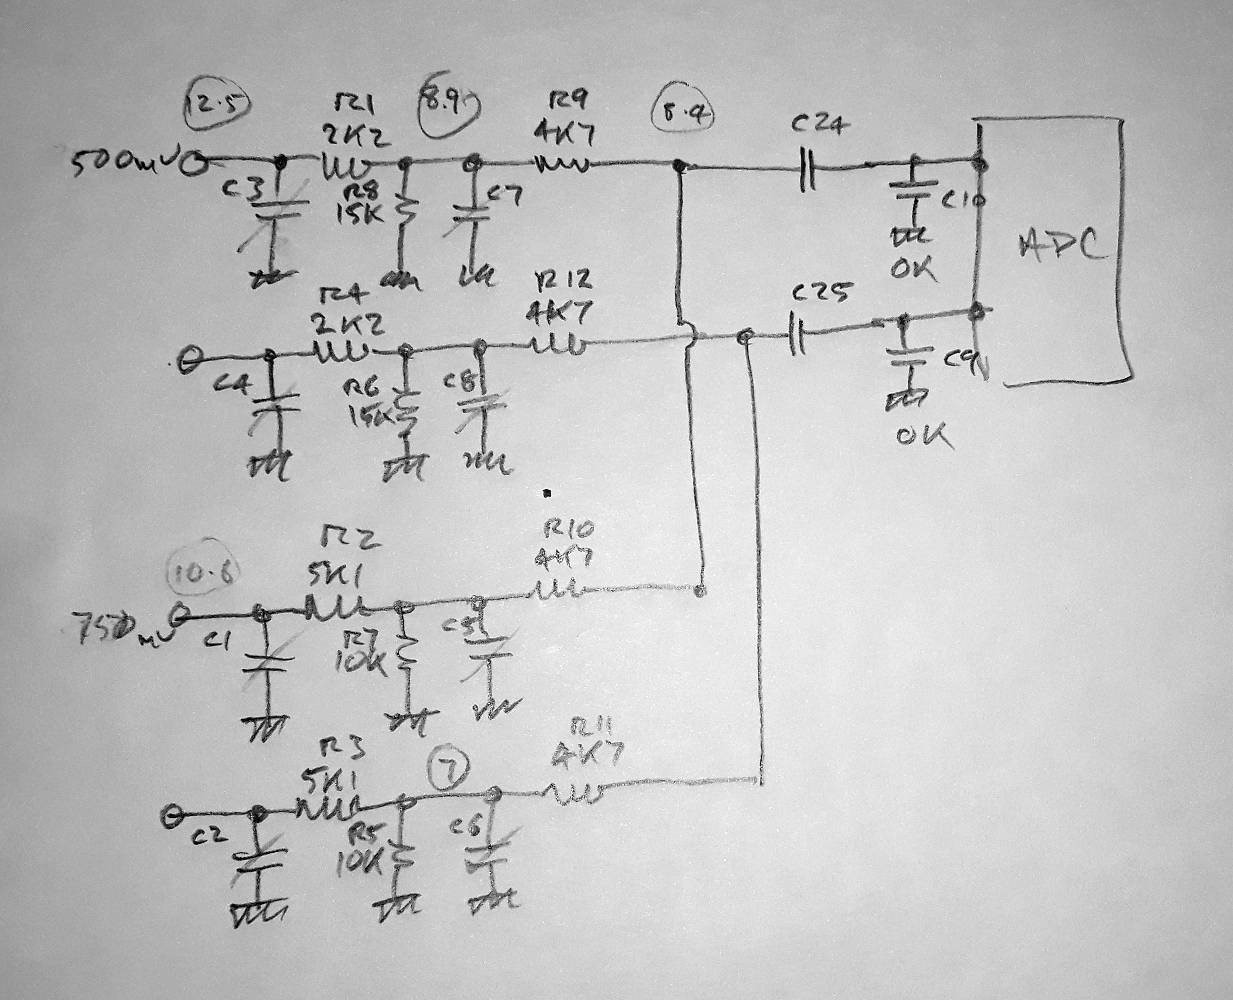 12.5
R1
2K2
8.9
R9
4K7
8.9
C24
500mV
C3
R8
15K
C7
C10
OK
ADC
R4
2K2
R12
4K7
C25
C4
R6
15K
C8
C9
OK
R2
5K1
R10
4K7
10.6
750mV
C1
R7
10K
C5
R3
5K1
7
R11
4K7
C2
R5
10K
C6